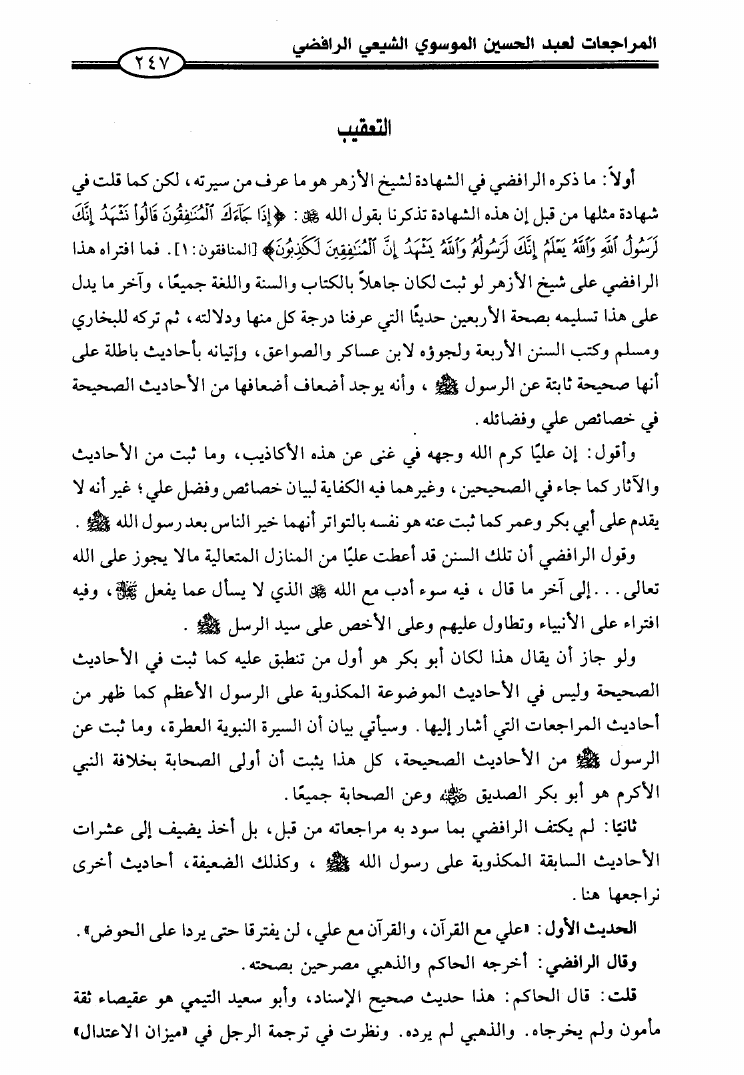 المراجعات لعبد الحسين الموسوي الشيعي الرافضي
٢٤٧
التعقيب
أولاً: ما ذكره الرافضي في الشهادة لشيخ الأزهر هو ما عرف من سيرته، لكن كما قلت في
شهادة مثلها من قبل إن هذه الشهادة تذكرنا بقول الله ﷻ: ﴿إِذَا جَآءَكَ ٱلْمُنَٰفِقُونَ قَالُوا۟ نَشْهَدُ إِنَّكَ
لَرَسُولُ ٱللَّهِ وَٱللَّهُ يَعْلَمُ إِنَّكَ لَرَسُولُهُۥ وَٱللَّهُ يَشْهَدُ إِنَّ ٱلْمُنَٰفِقِينَ لَكَٰذِبُونَ﴾ [المنافقون:١]. فما افتراه هذا
الرافضي على شيخ الأزهر لو ثبت لكان جاهلاً بالكتاب والسنة واللغة جميعًا، وآخر ما يدل
على هذا تسليمه بصحة الأربعين حديثًا التي عرفنا درجة كل منها ودلالته، ثم تركه للبخاري
ومسلم وكتب السنن الأربعة ولجوؤه لابن عساكر والصواعق، وإتيانه بأحاديث باطلة على
أنها صحيحة ثابتة عن الرسول ﷺ، وأنه يوجد أضعاف أضعافها من الأحاديث الصحيحة
في خصائص علي وفضائله.
وأقول: إن عليًا كرم الله وجهه في غنى عن هذه الأكاذيب، وما ثبت من الأحاديث
والآثار كما جاء في الصحيحين، وغيرهما فيه الكفاية لبيان خصائص وفضل علي؛ غير أنه لا
يقدم على أبي بكر وعمر كما ثبت عنه هو نفسه بالتواتر أنهما خير الناس بعد رسول الله ﷺ.
وقول الرافضي أن تلك السنن قد أعطت عليًا من المنازل المتعالية مالا يجوز على الله
تعالى...إلى آخر ما قال، فيه سوء أدب مع الله ﷻ الذي لا يسأل عما يفعل، وفيه
افتراء على الأنبياء وتطاول عليهم وعلى الأخص على سيد الرسل ﷺ.
ولو جاز أن يقال هذا لكان أبو بكر هو أول من تنطبق عليه كما ثبت في الأحاديث
الصحيحة وليس في الأحاديث الموضوعة المكذوبة على الرسول الأعظم كما ظهر من
أحاديث المراجعات التي أشار إليها. وسيأتي بيان أن السيرة النبوية العطرة، وما ثبت عن
الرسول ﷺ من الأحاديث الصحيحة، كل هذا يثبت أن أولى الصحابة بخلافة النبي
الأكرم هو أبو بكر الصديق رضي الله عنه وعن الصحابة جميعًا.
ثانيًا: لم يكتف الرافضي بما سود به مراجعاته من قبل، بل أخذ يضيف إلى عشرات
الأحاديث السابقة المكذوبة على رسول الله ﷺ، وكذلك الضعيفة، أحاديث أخرى
نراجعها هنا.
الحديث الأول: «علي مع القرآن، والقرآن مع علي، لن يفترقا حتى يردا على الحوض».
وقال الرافضي: أخرجه الحاكم والذهبي مصرحين بصحته.
قلت: قال الحاكم: هذا حديث صحيح الإسناد، وأبو سعيد التيمي هو عقيصاء ثقة
مأمون ولم يخرجاه. والذهبي لم يرده. ونظرت في ترجمة الرجل في «ميزان الاعتدال»